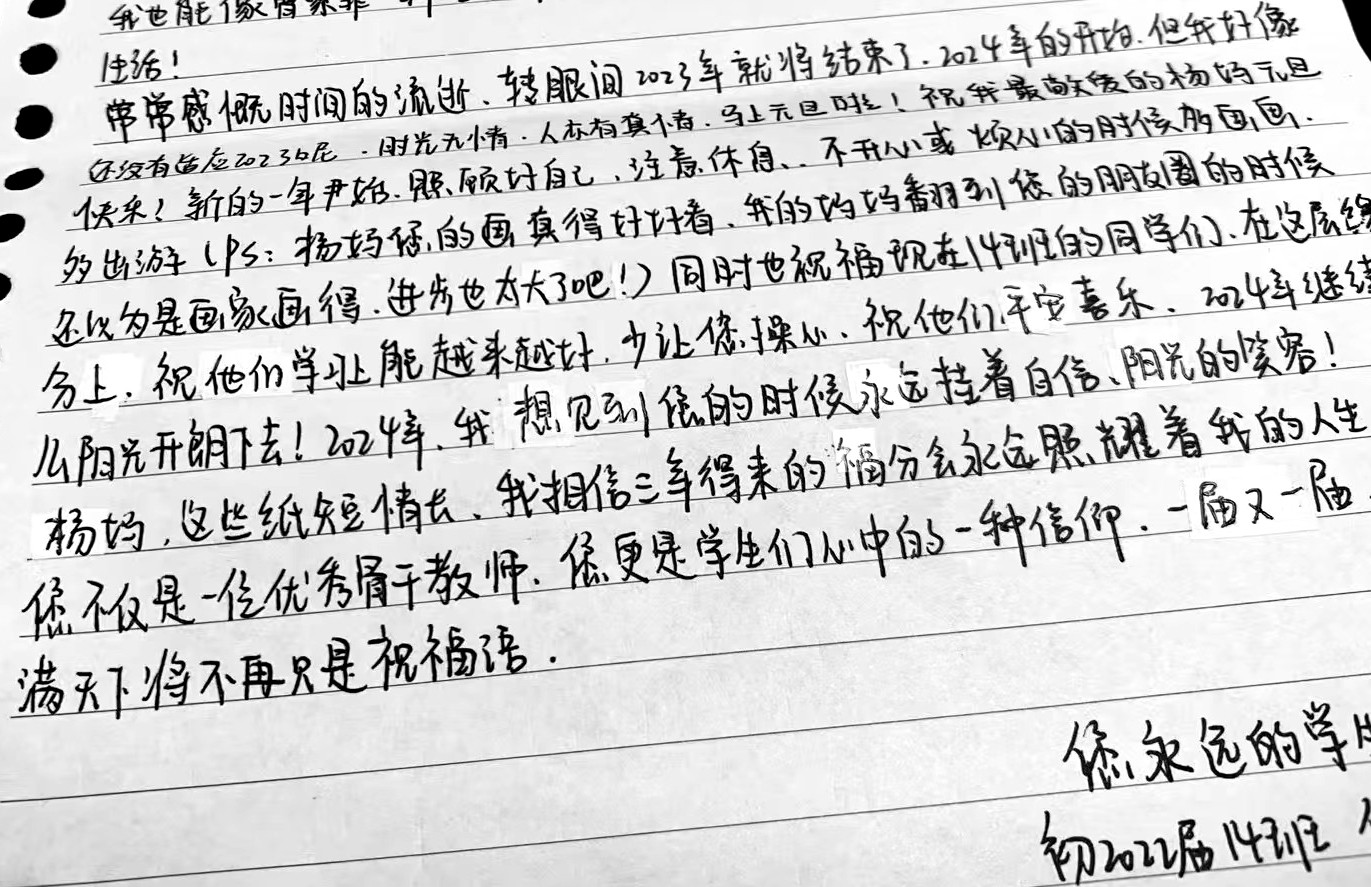 我也能像
生活！
常常感慨时间的流逝、转眼间2023年就将结束了.2024年的开始.但我好像
还没有适应2023的尾.时光无情.人亦有真情.马上元旦啦！祝我最敬爱的杨妈元旦
快乐！新的一年伊始.照顾好自己、注意休息、不开心或烦心的时候多画画.
多出游（PS：杨妈您的画真得好好看、我的妈妈翻到您的朋友圈的时候
还以为是画家画得.进步也太大了吧！）同时也祝福现在14班的同学们、在这层缘
分上、祝他们学习上能越来越好.少让您操心、祝他们平安喜乐、2024年继续
么阳光开朗下去！2024年.我想见到您的时候永远挂着自信、阳光的笑容！
杨妈,这些纸短情长、我相信三年得来的福分会永远照耀着我的人生
您不仅是一位优秀骨干教师.您更是学生们心中的一种信仰.一届又一届
满天下将不再只是祝福语.
您永远的学生
初2022届14班